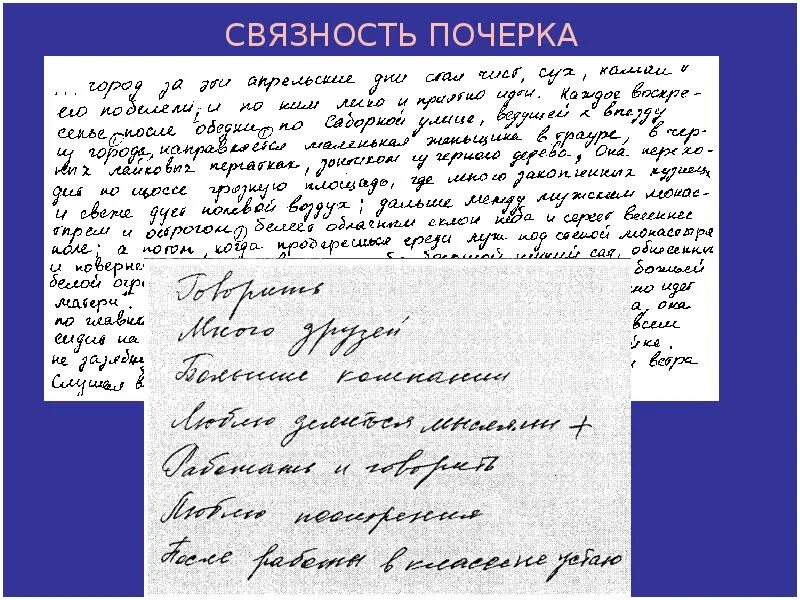 СВЯЗНОСТЬ ПОЧЕРКА
... город за эти апрельские дни стал чист, сух, камни
его побелели, и по ним легко и приятно идти. Каждое воскре-
сенье, после обедни, по Соборной улице, ведущей к выезду
из города, направляется маленькая женщина в трауре, в чер-
ных лайковых перчатках, с зонтиком из черного дерева. Она перехо-
дит по шоссе грязную площадь, где много закопченных кузниц
и свежо дует полевой воздух; дальше между мужским монас-
тырем и острогом, белеет облачный склон неба и сереет весеннее
поле; а потом, когда проберешься среди луж под стеной монастыря
и поверне сад, обнесенный
белой огр божьей
матери. но идет
по главн а, она
сидит на всем
не зазябн ке.
Слушая в ветра
Говорить
Много друзей
Большие компании
Люблю делиться мыслями +
Работать и говорить
Люблю поощрения
После работы в классе не устаю